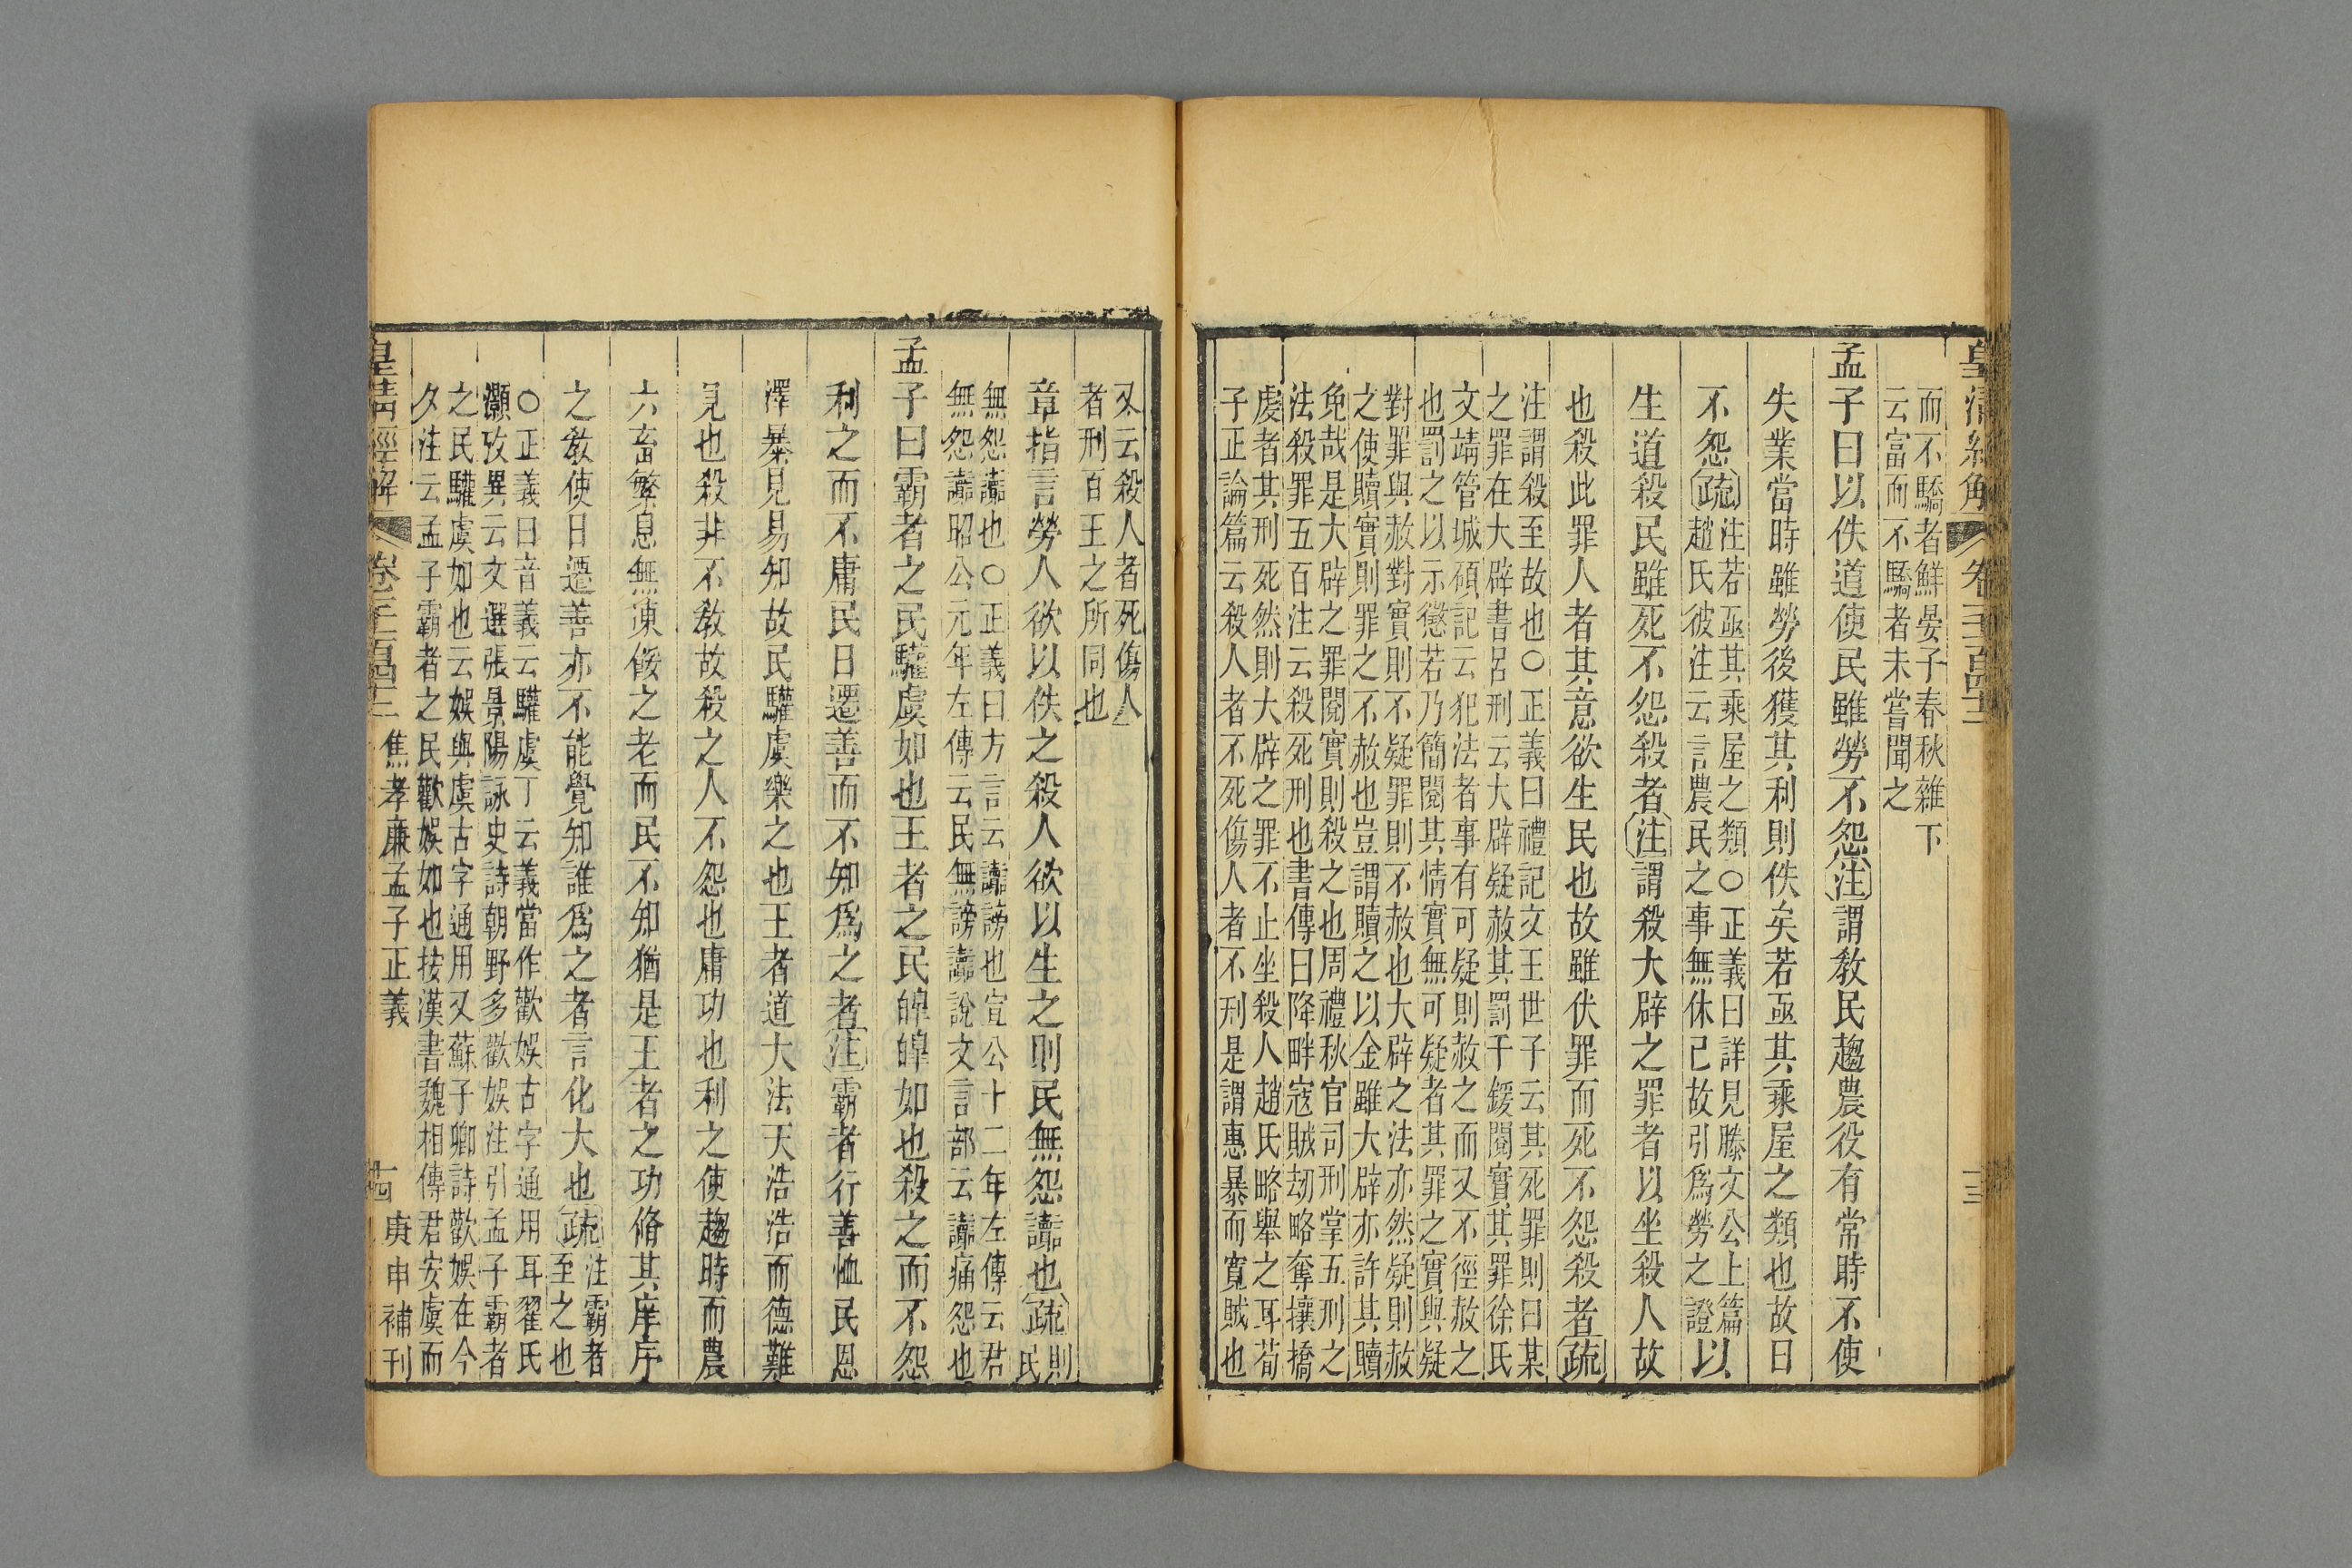 皇清經解
十三
而不驕者鮮晏子春秋雜下
云富而不驕者未嘗聞之
孟子曰以佚道使民雖勞不怨注謂敎民趨農役有常時不使
失業當時雖勞後獲其利則佚矣若亟其乘屋之類也故曰
不怨疏注若亟其乘屋之類○正義曰詳見滕文公上篇
趙氏彼注云言農民之事無休已故引爲勞之證以
生道殺民雖死不怨殺者注謂殺大辟之罪者以坐殺人故
也殺此罪人者其意欲生民也故雖伏罪而死不怨殺者疏
注謂殺至故也○正義曰禮記文王世子云其死罪則曰某
之罪在大辟書呂刑云大辟疑赦其罰千鍰閱實其罪徐氏
文靖管城碩記云犯法者事有可疑則赦之而又不徑赦之
也罰之以示懲若乃簡閱其情實無可疑者其罪之實與疑
對罪與赦對實則不疑罪則不赦也大辟之法亦然疑則赦
之使贖實則罪之不赦也豈謂贖之以金雖大辟亦許其贖
免哉是大辟之罪閱實則殺之也周禮秋官司刑掌五刑之
法殺罪五百注云殺死刑也書傳曰降畔寇賊劫略奪攘撟
虔者其刑死然則大辟之罪不止坐殺人趙氏略舉之耳荀
子正論篇云殺人者不死傷人者不刑是謂惠暴而寬賊也
又云殺人者死傷人
者刑百王之所同也
章指言勞人欲以佚之殺人欲以生之則民無怨讟也疏則
民
無怨讟也○正義曰方言云讟謗也宣公十二年左傳云君
無怨讟昭公元年左傳云民無謗讟說文言部云讟痛怨也
孟子曰霸者之民驩虞如也王者之民皞皞如也殺之而不怨
利之而不庸民日遷善而不知爲之者注霸者行善恤民恩
澤暴見易知故民驩虞樂之也王者道大法天浩浩而德難
見也殺非不敎故殺之人不怨也庸功也利之使趨時而農
六畜繁息無凍餒之老而民不知猶是王者之功脩其庠序
之敎使日遷善亦不能覺知誰爲之者言化大也疏注霸者
至之也
○正義曰音義云驩虞丁云義當作歡娛古字通用耳翟氏
灝攷異云文選張景陽詠史詩朝野多歡娛注引孟子霸者
之民驩虞如也云娛與虞古字通用又蘇子卿詩歡娛在今
夕注云孟子霸者之民歡娛如也按漢書魏相傳君安虞而
皇清經解
焦孝廉孟子正義
十四
庚申補刊